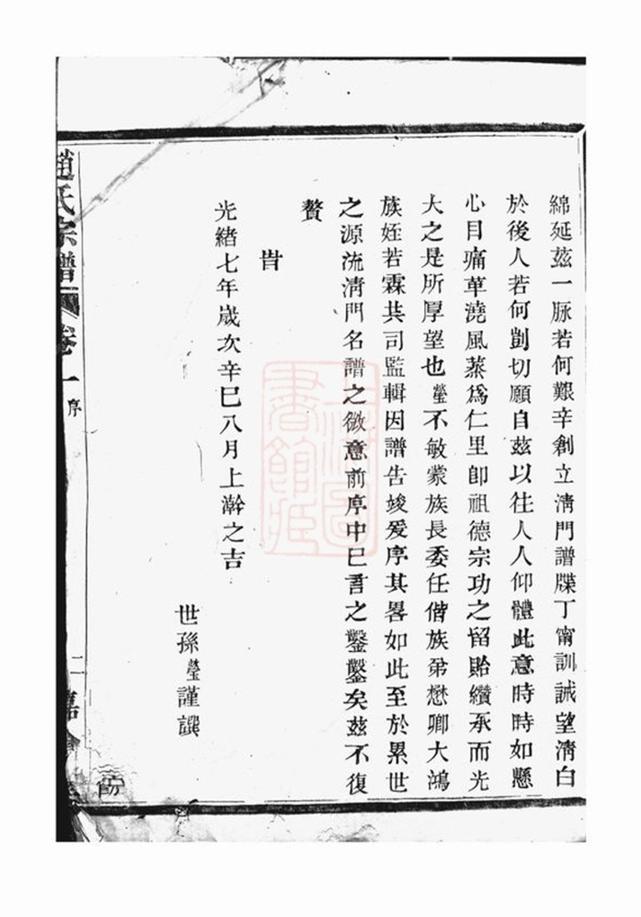 綿延茲一脉若何艱辛創立淸門譜牒丁甯訓誡望淸白
於後人若何剴切願自茲以往人人仰體此意時時如懸
心目痛革澆風蒸爲仁里卽祖德宗功之留貽纘承而光
大之是所厚望也瑩不敏蒙族長委任偕族弟懋卿大鴻
族姪若霖共司監輯因譜告竣爰序其畧如此至於累世
之源流淸門名譜之微意前序中已言之鑿鑿矣茲不復
贅
旹
光緒七年歲次辛巳八月上澣之吉
世孫瑩謹譔
趙氏宗譜
卷一
序
二